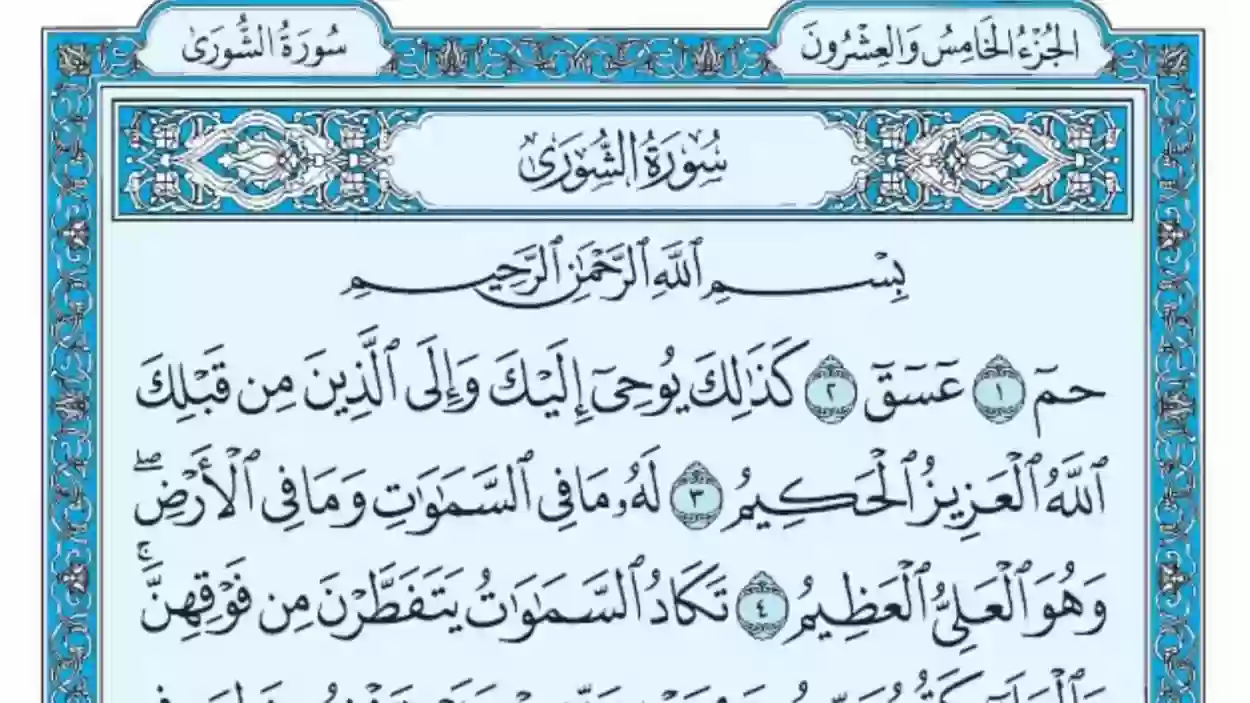 الجُزْءُ الخَامِسُ وَالعِشْرُونَ
سُورَةُ الشُّورَىٰ
سُورَةُ الشُّورَىٰ
بِسْمِ ٱللَّهِ ٱلرَّحْمَٰنِ ٱلرَّحِيمِ
حمٓ ١ عٓسٓقٓ ٢ كَذَٰلِكَ يُوحِىٓ إِلَيْكَ وَإِلَى ٱلَّذِينَ مِن قَبْلِكَ
ٱللَّهُ ٱلْعَزِيزُ ٱلْحَكِيمُ ٣ لَهُۥ مَا فِى ٱلسَّمَٰوَٰتِ وَمَا فِى ٱلْأَرْضِۖ
وَهُوَ ٱلْعَلِىُّ ٱلْعَظِيمُ ٤ تَكَادُ ٱلسَّمَٰوَٰتُ يَتَفَطَّرْنَ مِن فَوْقِهِنَّۚ